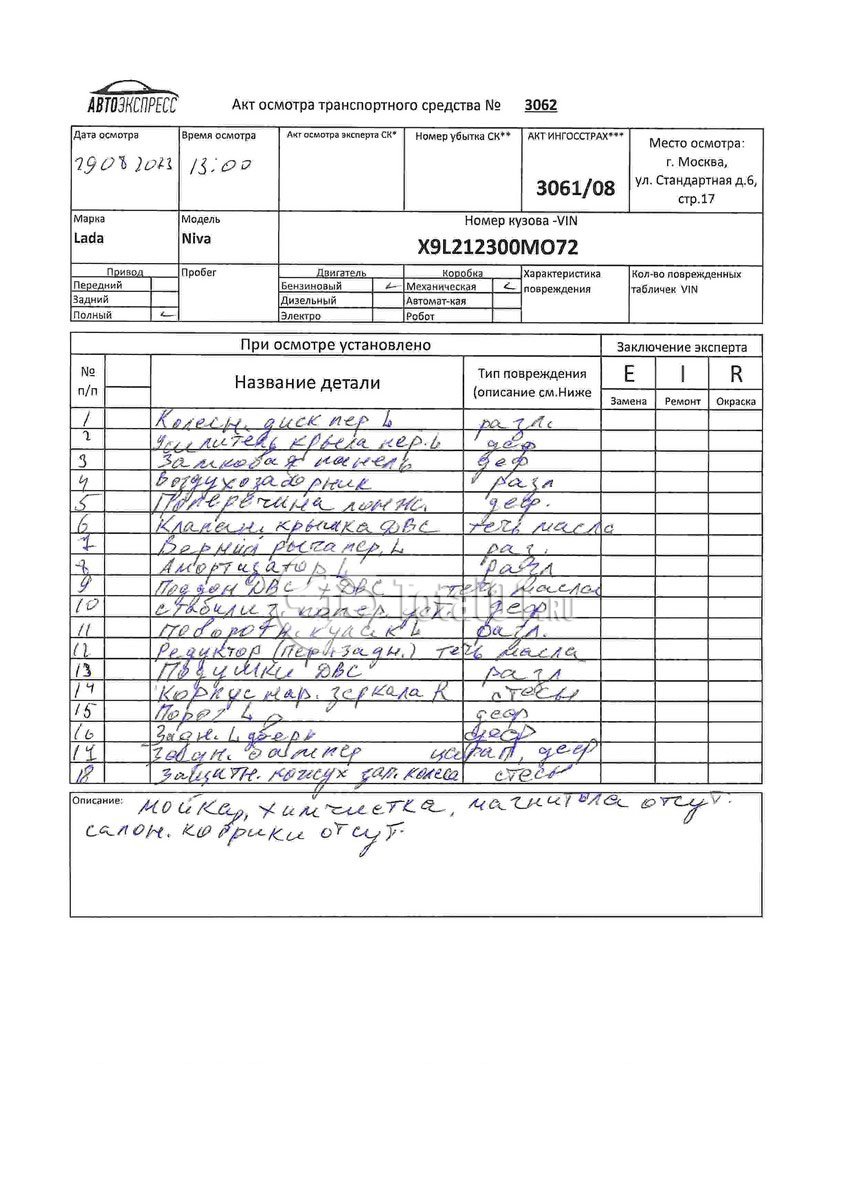 АВТОЭКСПРЕСС
Акт осмотра транспортного средства № 3062
Дата осмотра Время осмотра Акт осмотра эксперта СК* Номер убытка СК** АКТ ИНГОССТРАХ*** Место осмотра:
29 08 2023 13:00 3061/08 г. Москва,
ул. Стандартная д.6,
стр.17
Марка Модель Номер кузова -VIN
Lada Niva X9L212300МО72
Привод Пробег Двигатель Коробка Характеристика повреждения Кол-во поврежденных табличек VIN
Передний Бензиновый Механическая
Задний Дизельный Автомат-кая
Полный Электро Робот
При осмотре установлено Заключение эксперта
№ п/п Название детали Тип повреждения (описание см.Ниже E I R
Замена Ремонт Окраска
1 Колесн. диск пер L разл.
2 Усилитель крыла пер. L деф
3 Замковая панель деф
4 Воздухозаборник разл
5 Поперечина лонж. деф.
6 Клапан. крышка ДВС течь масла
7 Верхний рычаг пер. L раз.
8 Амортизатор L разл
9 Поддон ДВС + ДВС течь масла
10 Стабилиз. попер. уст деф
11 Поворотн. кулак L разл.
12 Редуктор (пер+задн.) течь масла
13 Подушки ДВС разл
14 Корпус нар. зеркала R стесы
15 Порог L деф
16 Задн. L дверь деф
17 Задн. бампер царап, деф
18 Защитн. кожух зап. колеса стесы
Описание: мойка, химчистка, магнитола отсут.
салон. коврики отсут.
TotalOK.RU